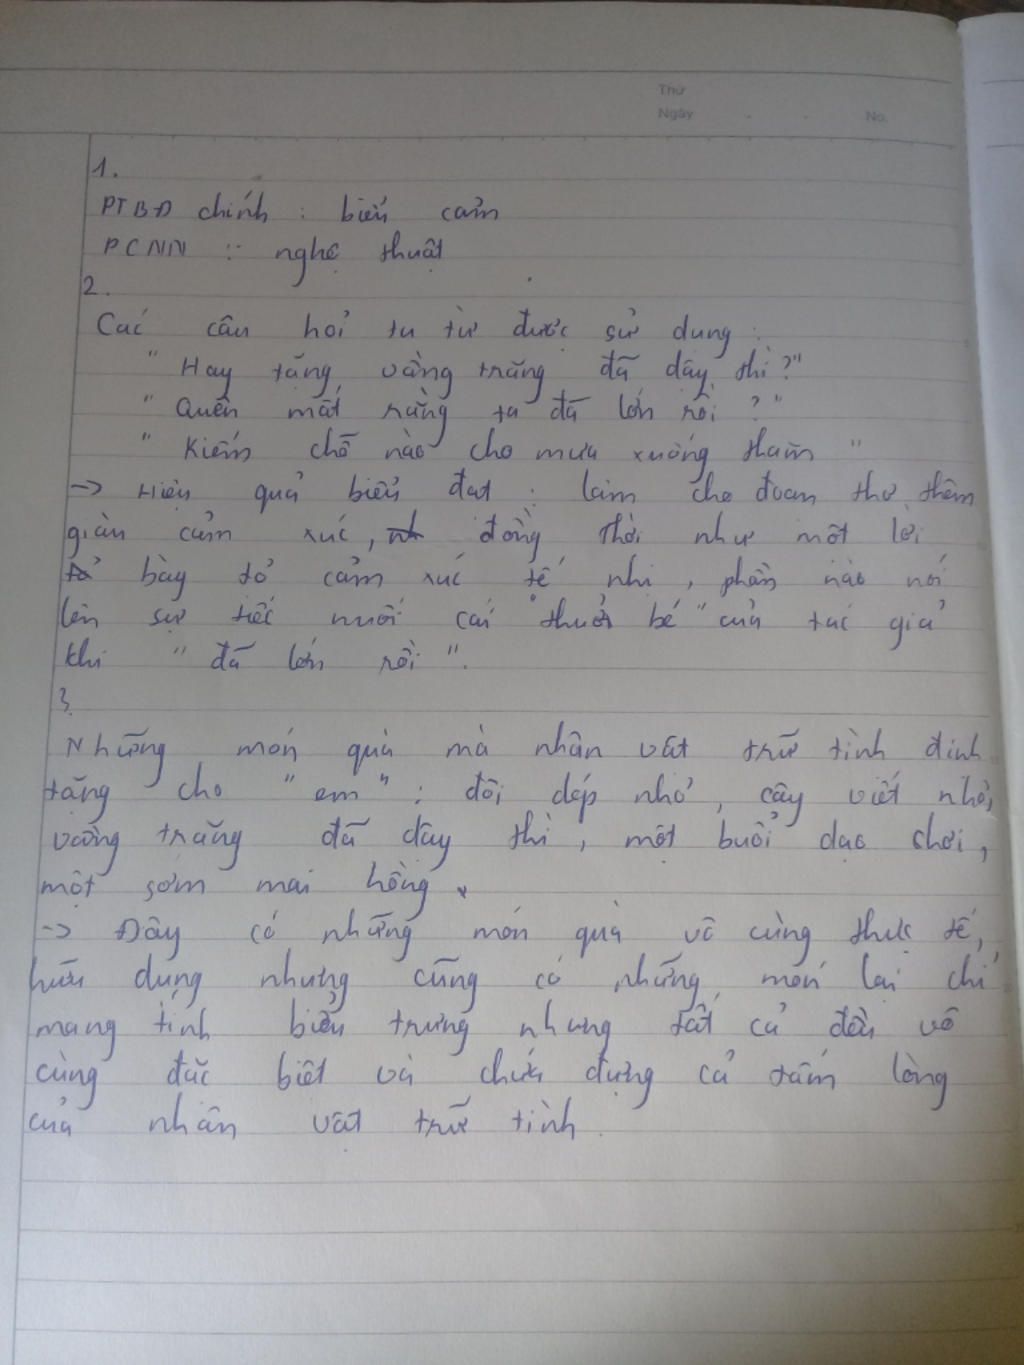 Thứ
Ngày . . No.
1.
PTBĐ chính : biểu cảm
PCNN : nghệ thuật
2.
Các câu hỏi tu từ được sử dụng :
" Hay tặng vầng trăng đã dậy thì ? "
" Quên mất rằng ta đã lớn rồi ? "
" Kiếm chỗ nào cho mưa xuống thăm "
-> Hiệu quả biểu đạt : làm cho đoạn thơ thêm
giàu cảm xúc, đồng thời như một lời
bày tỏ cảm xúc tế nhị, phần nào nói
lên sự tiếc nuối cái " thuở bé " của tác giả
khi " đã lớn rồi ".
3.
Những món quà mà nhân vật trữ tình định
tặng cho " em " : đôi dép nhỏ, cây viết nhỏ,
vầng trăng đã dậy thì, một buổi dạo chơi,
một sớm mai hồng.
-> Đây có những món quà vô cùng thực tế,
hữu dụng nhưng cũng có những món lại chỉ
mang tính biểu trưng nhưng tất cả đều vô
cùng đặc biệt và chứa đựng cả tấm lòng
của nhân vật trữ tình.